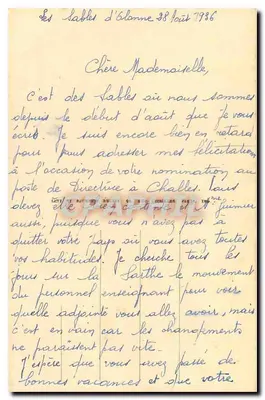 Les Sables d'Olonne 28 Août 1936
Chère Mademoiselle,
C'est des Sables où nous sommes
depuis le début d'août que je vous
écris. Je suis encore bien en retard
pour vous adresser mes félicitations
à l'occasion de votre nomination au
poste de Directrice à Challes. Vous
devez
aussi, puisque vous n'avez pas à
quitter votre pays où vous avez toutes
vos habitudes. Je cherche tous les
jours sur la Sarthe le mouvement
du personnel enseignant pour voir
quelle adjointe vous allez avoir, mais
c'est en vain car les changements
ne paraissent pas vite.
J'espère que vous avez passé de
bonnes vacances et que votre